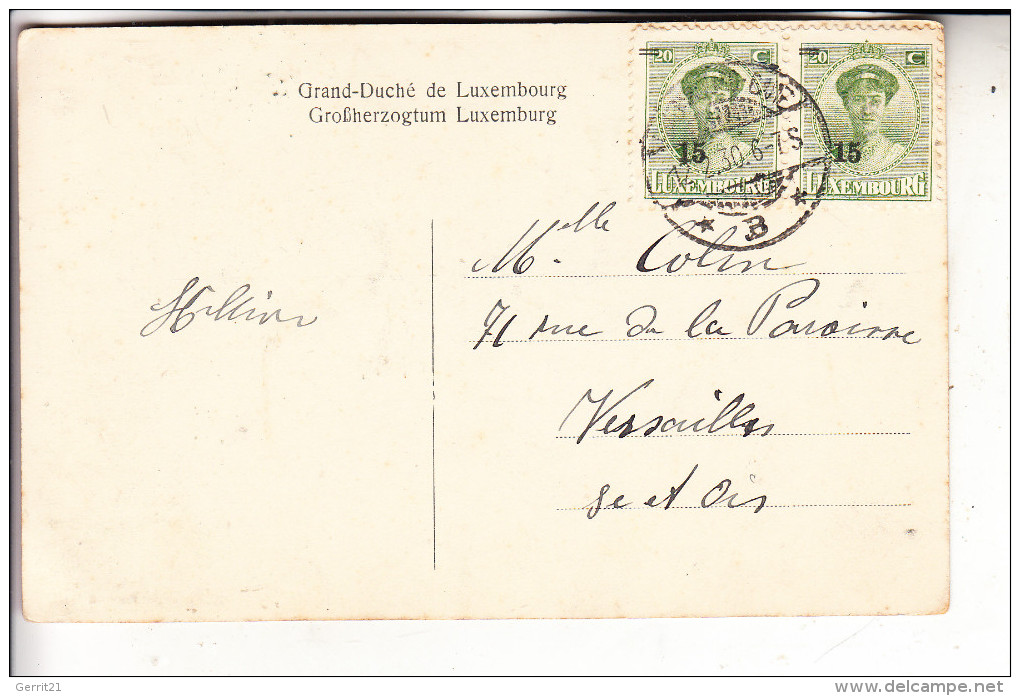 Grand-Duché de Luxembourg
Großherzogtum Luxemburg
20 C
15
LUXEMBOURG
20 C
15
LUXEMBOURG
30.6-7S
* B *
Melle Colin
71 rue de la Paroisse
Versailles
Se et Ois
Gerrit21
delcampe.net